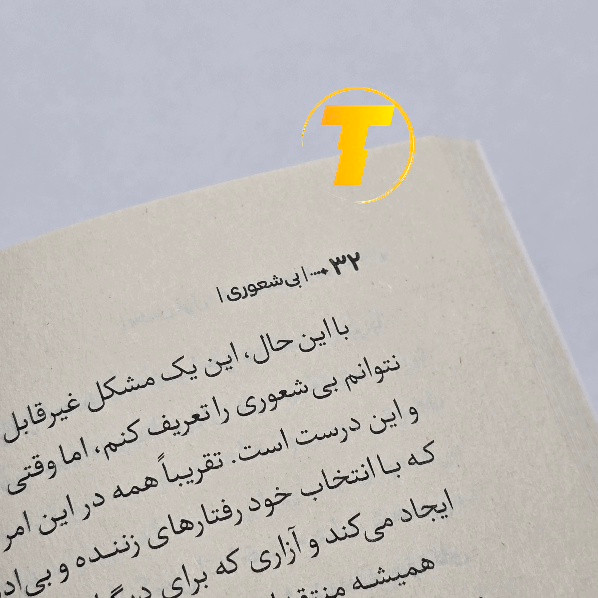 T
۳۲ | بی‌شعوری |
با این حال، این یک مشکل غیرقابل
نتوانم بی‌شعوری را تعریف کنم، اما وقتی
و این درست است. تقریباً همه در این امر
که با انتخاب خود رفتارهای زننده و
ایجاد می‌کند و آزاری که برای
همیشه